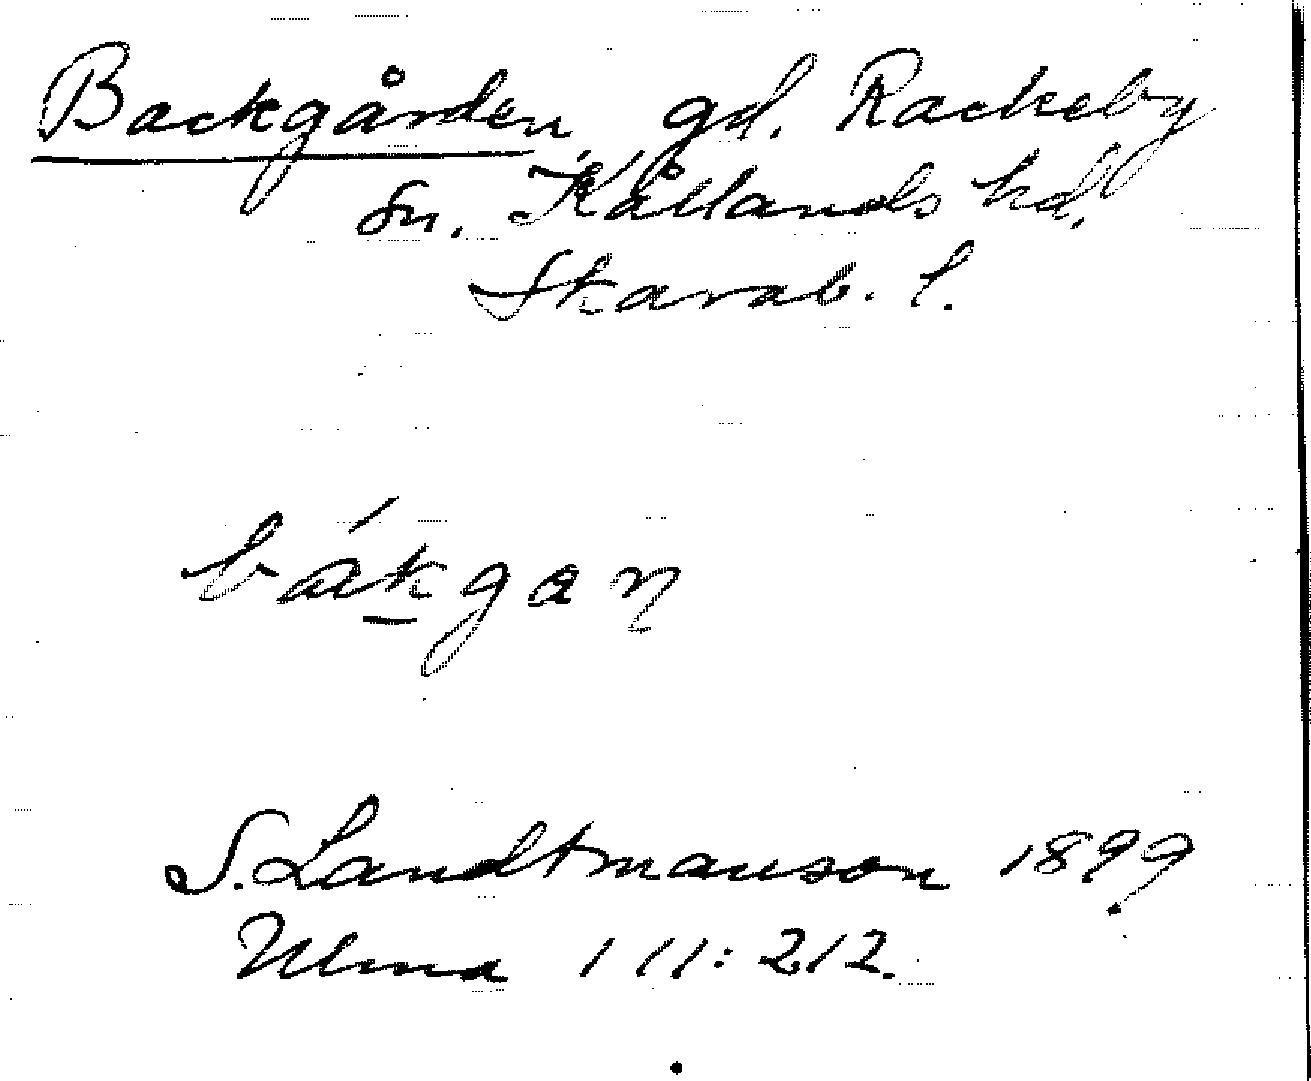 Backgården, gd. Rackeby
sn. Kållands hd.
Skarab. l.
bákgaƞ
S. Landtmanson 1899
Ulma 111:212.